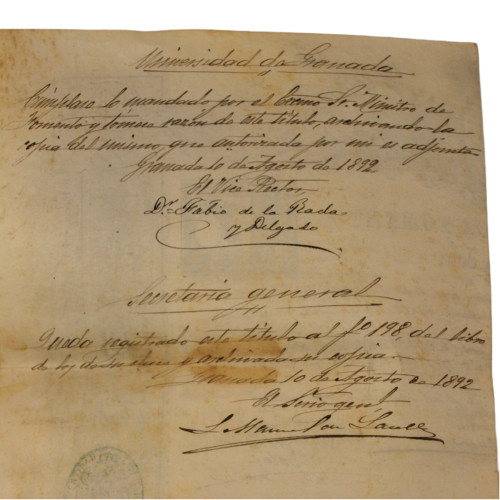 Universidad de Granada
Cúmplase lo mandado por el Excmo Sr. Ministro de
Fomento y tómese razón de este título, archivando la
copia del mismo, que autorizada por mi es adjunta.
Granada 10 de Agosto de 1892
El Vice Rector,
Dr. Fabio de la Rada
y Delgado
Secretaría general
Queda registrado este título al fo. 198, del libro
de los de su clase y archivada su copia.
Granada 10 de Agosto de 1892
El Srio genl.